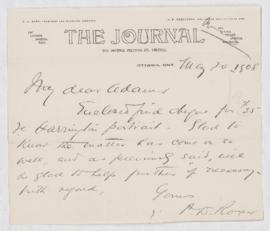 THE JOURNAL
OTTAWA, ONT. May 20 1908
My dear Adams
Enclosed find cheque for $25
re Harrington portrait. Glad to
know the matter has come on so
well, and as previously said, will
be glad to help further if necessary.
With regard,
Yours
P. D. Ross